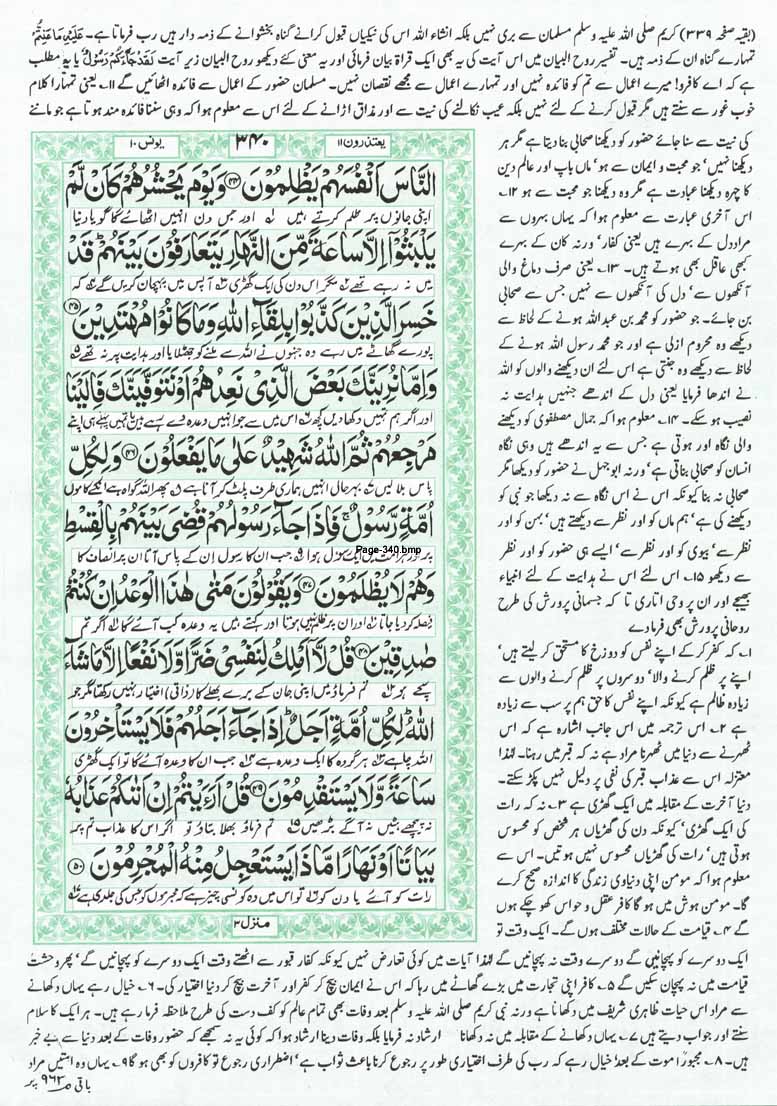 (بقیہ صفحہ ۳۳۹) کریم صلی اللہ علیہ وسلم مسلمان سے بری نہیں بلکہ انشاء اللہ اس کی نیکیاں قبول کرانے گناہ بخشوانے کے ذمہ دار ہیں رب فرماتا ہے۔ عَلَيْهِ مَا عَنِتُّمْ
تمہارے گناہ ان کے ذمہ ہیں۔ تفسیر روح البیان میں اس آیت کی یہ بھی ایک قراۃ بیان فرمائی اور یہ معنی کئے دیکھو روح البیان زیر آیت لَقَدْ جَاءَكُمْ رَسُولٌ یا یہ مطلب
ہے کہ اے کافرو! میرے اعمال سے تم کو فائدہ نہیں اور تمہارے اعمال سے مجھے نقصان نہیں۔ مسلمان حضور کے اعمال سے فائدہ اٹھائیں گے ۱۱۔ یعنی تمہارا کلام
خوب غور سے سنتے ہیں مگر قبول کرنے کے لئے نہیں بلکہ عیب نکالنے کی نیت سے اور مذاق اڑانے کے لئے اس سے معلوم ہوا کہ وہی سننا فائدہ مند ہوتا ہے جو ماننے
کی نیت سے سنا جائے حضور کو دیکھنا صحابی بنا دیتا ہے مگر ہر
دیکھنا نہیں' جو محبت و ایمان سے ہو' ماں باپ اور عالم دین
کا چہرہ دیکھنا عبادت ہے مگر وہ دیکھنا جو محبت سے ہو ۱۲۔
اس آخری عبارت سے معلوم ہوا کہ یہاں بہروں سے
مراد دل کے بہرے ہیں یعنی کفار' ورنہ کان کے بہرے
کبھی عاقل بھی ہوتے ہیں۔ ۱۳۔ یعنی صرف دماغ والی
آنکھوں سے' دل کی آنکھوں سے نہیں جس سے صحابی
بن جائے۔ جو حضور کو محمد بن عبداللہ ہونے کے لحاظ سے
دیکھے وہ محروم ازلی ہے اور جو محمد رسول اللہ ہونے کے
لحاظ سے دیکھے وہ جنتی ہے اس لئے ان دیکھنے والوں کو اللہ
نے اندھا فرمایا یعنی دل کے اندھے جنہیں ہدایت نہ
نصیب ہو سکے۔ ۱۴۔ معلوم ہوا کہ جمال مصطفوی کو دیکھنے
والی نگاہ اور ہوتی ہے جس سے یہ اندھے ہیں وہی نگاہ
انسان کو صحابی بناتی ہے' ورنہ ابوجہل نے حضور کو دیکھا مگر
صحابی نہ بنا کیونکہ اس نے اس نگاہ سے نہ دیکھا جو نبی کو
دیکھنے کی ہے' ہم ماں کو اور نظر سے دیکھتے ہیں' بہن کو اور
نظر سے' بیوی کو اور نظر سے' ایسے ہی حضور کو اور نظر
سے دیکھو ۱۵۔ اس لئے اس نے ہدایت کے لئے انبیاء
بھیجے اور ان پر وحی اتاری تا کہ جسمانی پرورش کی طرح
روحانی پرورش بھی فرما دے
۱۔ کہ کفر کر کے اپنے نفس کو دوزخ کا مستحق کر لیتے ہیں'
اپنے پر ظلم کرنے والا' دوسروں پر ظلم کرنے والوں سے
زیادہ ظالم ہے کیونکہ اپنے نفس کا حق ہم پر سب سے زیادہ
ہے ۲۔ اس ترجمہ میں اس جانب اشارہ ہے کہ اس
ٹھہرنے سے دنیا میں ٹھہرنا مراد ہے نہ کہ قبر میں رہنا۔ لہٰذا
معتزلہ اس سے عذاب قبر کی نفی پر دلیل نہیں پکڑ سکتے۔
دنیا آخرت کے مقابلہ میں ایک گھڑی ہے ۳۔ نہ کہ رات
کی ایک گھڑی' کیونکہ دن کی گھڑیاں ہر شخص کو محسوس
ہوتی ہیں' رات کی گھڑیاں محسوس نہیں ہوتیں۔ اس سے
معلوم ہوا کہ مومن اپنی دنیاوی زندگی کا اندازہ صحیح کرے
گا۔ مومن ہوش میں ہو گا کافر عقل و حواس کھو چکے ہوں
گے ۴۔ قیامت کے حالات مختلف ہوں گے۔ ایک وقت تو
یعتذرون ۱۱
۳۴۰
یونس ۱۰
النَّاسَ أَنْفُسَهُمْ يَظْلِمُونَ ﴿۴۴﴾ وَيَوْمَ يَحْشُرُهُمْ كَأَنْ لَمْ
اپنی جانوں پر ظلم کرتے ہیں اور جس دن انہیں اٹھائے گا گویا دنیا
يَلْبَثُوا إِلَّا سَاعَةً مِنَ النَّهَارِ يَتَعَارَفُونَ بَيْنَهُمْ قَدْ
میں نہ رہے تھے مگر اس دن کی ایک گھڑی آپس میں پہچان کریں گے کہ
خَسِرَ الَّذِينَ كَذَّبُوا بِلِقَاءِ اللَّهِ وَمَا كَانُوا مُهْتَدِينَ ﴿۴۵﴾
پورے گھاٹے میں رہے وہ جنہوں نے اللہ سے ملنے کو جھٹلایا اور ہدایت پر نہ تھے
وَإِمَّا نُرِيَنَّكَ بَعْضَ الَّذِي نَعِدُهُمْ أَوْ نَتَوَفَّيَنَّكَ فَإِلَيْنَا
اور اگر ہم تمہیں دکھا دیں کچھ اس میں سے جو انہیں وعدہ دے رہے ہیں یا تمہیں پہلے ہی اپنے
مَرْجِعُهُمْ ثُمَّ اللَّهُ شَهِيدٌ عَلَىٰ مَا يَفْعَلُونَ ﴿۴۶﴾ وَلِكُلِّ
پاس بلا لیں بہرحال انہیں ہماری طرف پلٹ کر آنا ہے پھر اللہ گواہ ہے انکے کاموں
أُمَّةٍ رَسُولٌ فَإِذَا جَاءَ رَسُولُهُمْ قُضِيَ بَيْنَهُمْ بِالْقِسْطِ
پر اور ہر امت میں ایک رسول ہوا جب ان کا رسول ان کے پاس آتا ان پر انصاف کا
Page-340.bmp
وَهُمْ لَا يُظْلَمُونَ ﴿۴۷﴾ وَيَقُولُونَ مَتَىٰ هَٰذَا الْوَعْدُ إِنْ كُنْتُمْ
فیصلہ کر دیا جاتا اور ان پر ظلم نہیں ہوتا اور کہتے ہیں یہ وعدہ کب آئے گا اگر تم
صَادِقِينَ ﴿۴۸﴾ قُلْ لَا أَمْلِكُ لِنَفْسِي ضَرًّا وَلَا نَفْعًا إِلَّا مَا شَاءَ
سچے ہو تم فرماؤ میں اپنی جان کے برے بھلے کا (ذاتی) اختیار نہیں رکھتا مگر جو
اللَّهُ لِكُلِّ أُمَّةٍ أَجَلٌ إِذَا جَاءَ أَجَلُهُمْ فَلَا يَسْتَأْخِرُونَ
اللہ چاہے ہر گروہ کا ایک وعدہ ہے جب ان کا وعدہ آئے گا تو ایک گھڑی
سَاعَةً وَلَا يَسْتَقْدِمُونَ ﴿۴۹﴾ قُلْ أَرَأَيْتُمْ إِنْ أَتَاكُمْ عَذَابُهُ
نہ پیچھے ہٹیں نہ آگے بڑھیں تم فرماؤ بھلا بتاؤ تو اگر اس کا عذاب تم پر
بَيَاتًا أَوْ نَهَارًا مَاذَا يَسْتَعْجِلُ مِنْهُ الْمُجْرِمُونَ ﴿۵۰﴾
رات کو آئے یا دن کو تو اس میں وہ کونسی چیز ہے کہ مجرموں کو جس کی جلدی ہے
منزل ۳
ایک دوسرے کو پہچانیں گے دوسرے وقت نہ پہچانیں گے لہٰذا آیات میں کوئی تعارض نہیں کیونکہ کفار قبور سے اٹھتے وقت ایک دوسرے کو پہچانیں گے' پھر وحشت
قیامت میں نہ پہچان سکیں گے ۵۔ کافر اپنی تجارت میں بڑے گھاٹے میں رہا کہ اس نے ایمان بیچ کر کفر اور آخرت بیچ کر دنیا اختیار کی۔ ۶۔ خیال رہے یہاں دکھانے
سے مراد اس حیات ظاہری شریف میں دکھانا ہے ورنہ نبی کریم صلی اللہ علیہ وسلم بعد وفات بھی تمام عالم کو کف دست کی طرح ملاحظہ فرما رہے ہیں۔ ہر ایک کا سلام
سنتے اور جواب دیتے ہیں ۷۔ یہاں دکھانے کے مقابلہ میں نہ دکھانا ارشاد نہ فرمایا بلکہ وفات دینا ارشاد ہوا کہ کوئی یہ نہ سمجھے کہ حضور وفات کے بعد دنیا سے بے خبر
ہیں۔ ۸۔ مجبوراً موت کے بعد' خیال رہے کہ رب کی طرف اختیاری طور پر رجوع کرنا باعث ثواب ہے' اضطراری رجوع تو کافروں کو بھی ہو گا ۹۔ یہاں وہ امتیں مراد
باقی ص ۹۶۳ پر